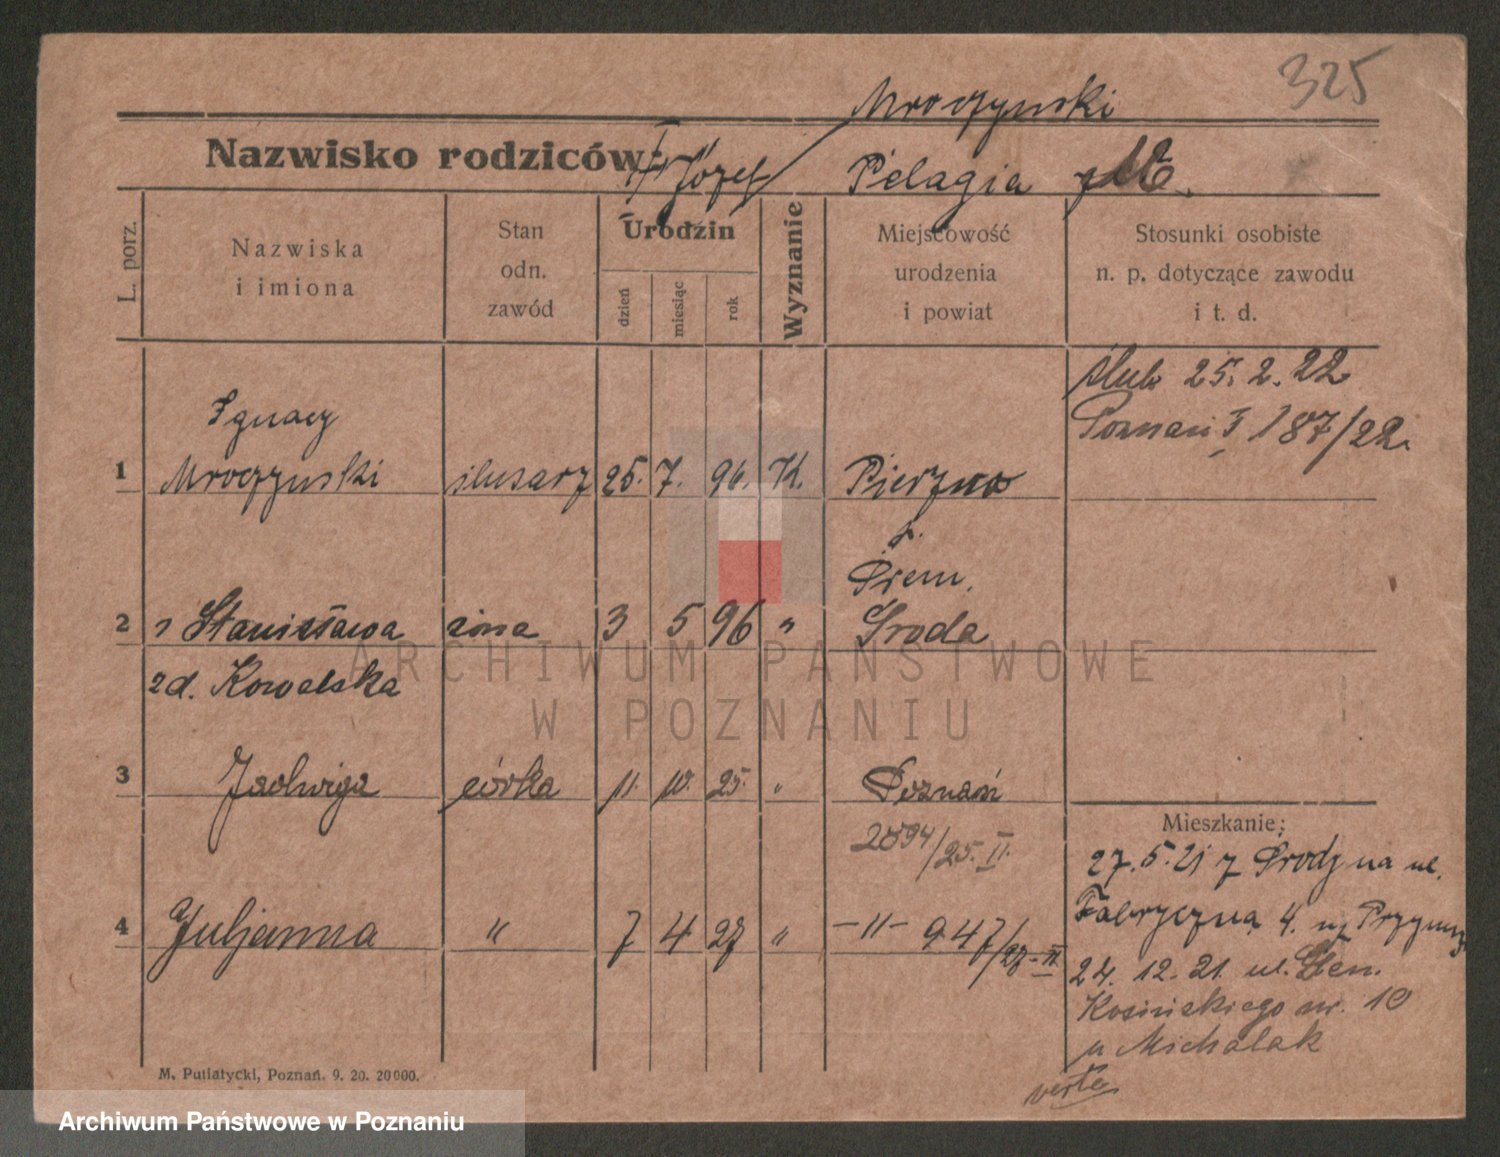 325
Mroczynski
Nazwisko rodziców: Józef Pelagia
L. porz.
Nazwiska
i imiona
Stan
odn.
zawód
Urodzin
dzień
miesiąc
rok
Wyznanie
Miejscowość
urodzenia
i powiat
Stosunki osobiste
n. p. dotyczące zawodu
i t. d.
ślub 25. 2. 22
Poznań I 187/22.
Ignacy
1 Mroczynski ślusarz 25. 7. 96. K.
p.
Śrem.
2 Stanisława żona 3 5 96 " Środa
zd. Kowalska
3 Jadwiga córka 11. 10. 25. " Poznań
2894/25. II.
Mieszkanie:
27. 5. 21 z Środy na ul.
4 Juljanna " 7 4 27 " -"- 947/27-II
Fabryczną 4.
24. 12. 21. ul.
Kosińskiego nr. 10
u Michalak
verte
M. Putiatycki, Poznań. 9. 20. 20000.
ARCHIWUM PAŃSTWOWE
W POZNANIU
Archiwum Państwowe w Poznaniu